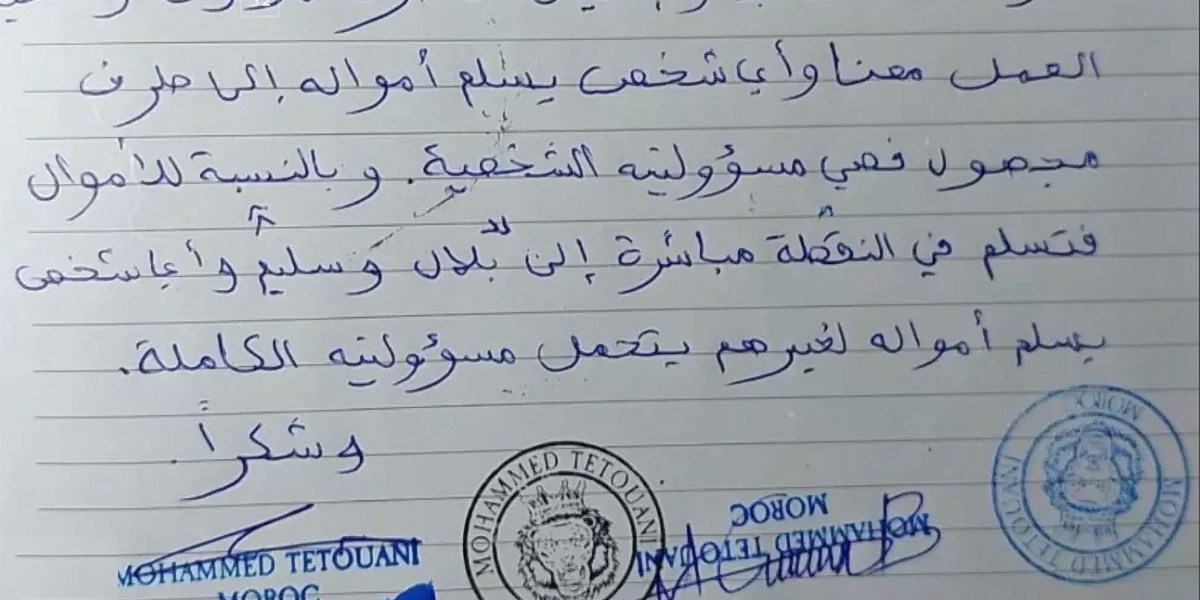 العمل معنا وأي شخص يسلم أمواله إلى طرف
مجهول فهي مسؤوليته الشخصية. وبالنسبة للأموال
فتسلم في النقطة مباشرة إلى بلال وسليم وأي شخص
يسلم أمواله لغيرهم يتحمل مسؤوليته الكاملة.
وشكراً.
MOHAMMED TETOUANI
MOROC
MOHAMMED TETOUANI
MOHAMMED TETOUANI
MOROC
MOHAMMED TETOUANI
MOROC